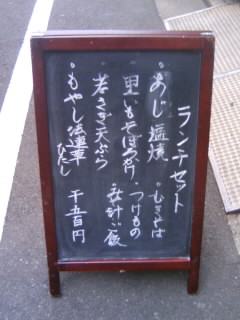 ランチセット
・あじ塩焼
里いもそぼろかけ ・つけもの
若さぎ天ぷら ご飯
・もやし法蓮草ひたし 千五百円